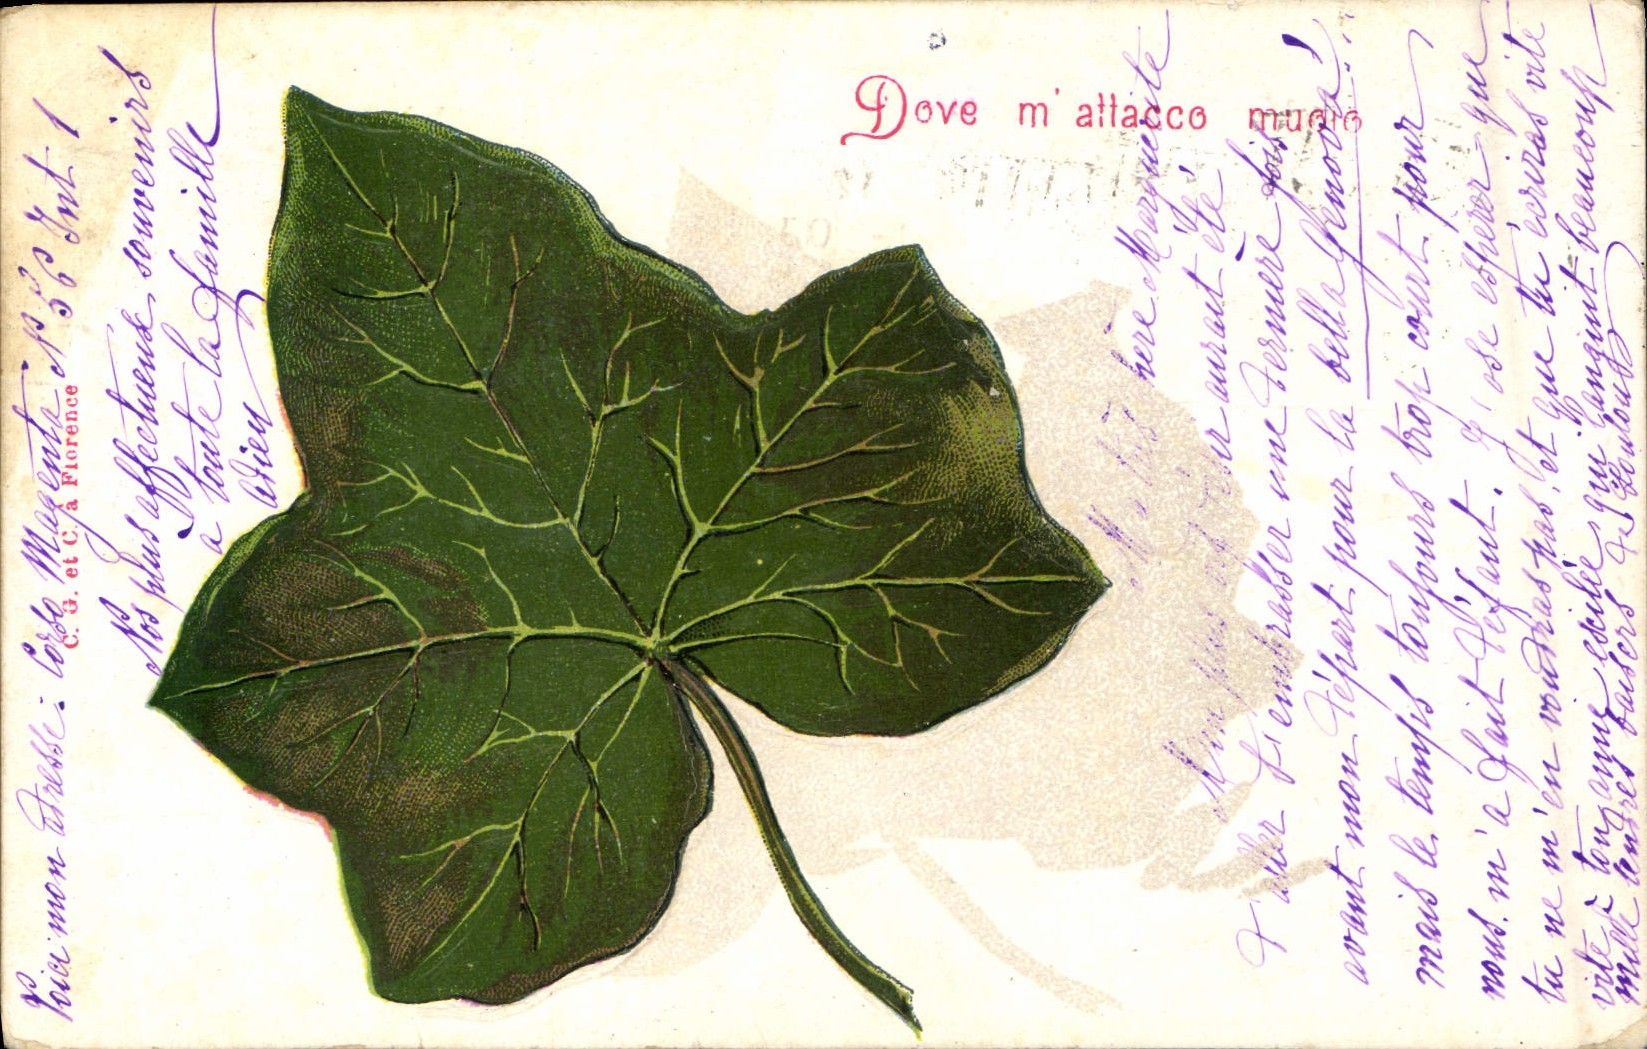 Dove m'attacco muoio
Ma très chère Marguerite
Mon plus désir aurait été
d'aller t'embrasser une dernière fois
avant mon départ pour la bella Genova!
mais le temps toujours trop court pour
nous m'a fait défaut. J'ose espérer que
tu ne m'en voudras pas, et que tu écriras vite
vite à ton amie exilée qui languit beaucoup
mille tendres baisers
Nos plus affectueux souvenirs
à toute la famille
adieu
Voici mon adresse: Corso Magenta N° 56 Int 1
C. G. et C. à Florence